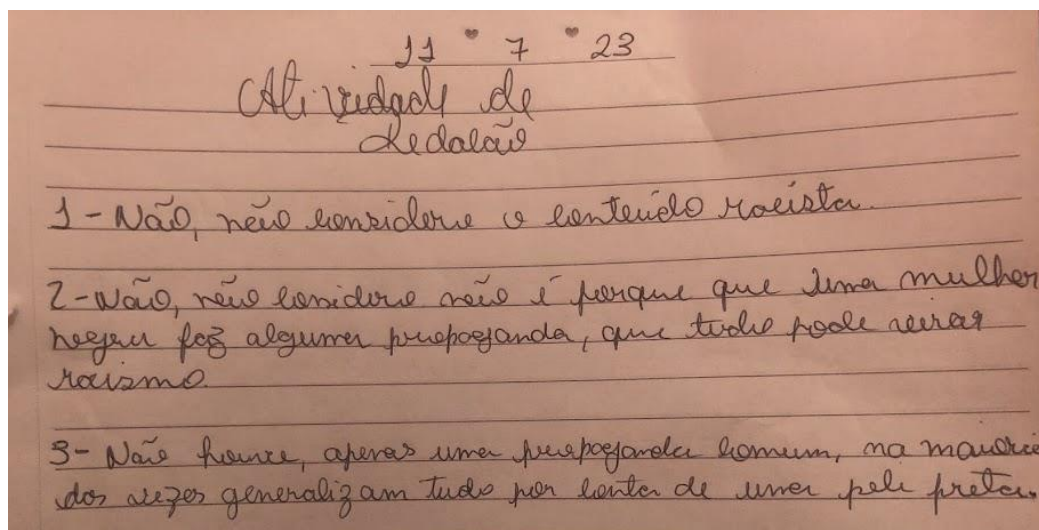 11 7 23
Atividade de
Redalão
1 - Não, não considero o conteúdo racista.
2 - Não, não conidero não é porque que uma mulher
negra faz alguma propoganda, que tudo pode virar
racismo.
3 - Não houve, apenas uma propoganda comum, na maiorie
dos vezes generalizam tudo por conta de uma pele preta.